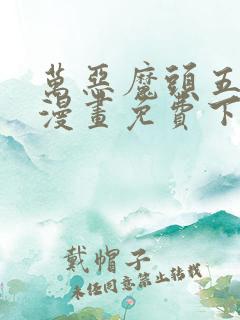 萬惡魔頭五
漫畫免費下
戴帽子
未经同意禁止转载